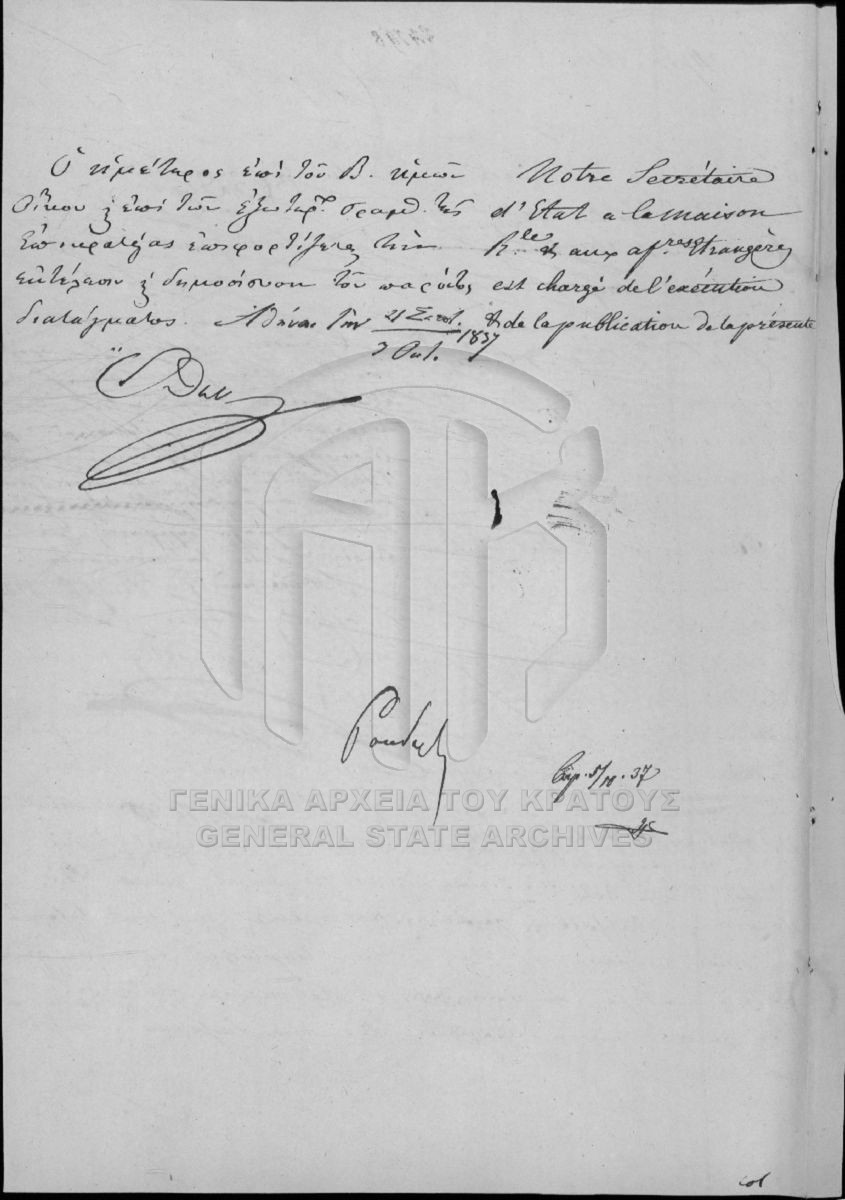 Ὁ ἡμέτερος ἐπὶ τοῦ Β. ἡμῶν
Οἴκου κ ἐπὶ τῶν ἐξωτερ. Γραμ. τῆς
Ἐπικρατείας ἐπιφορτίζεται τὴν
ἐκτέλεσιν κ δημοσίευσιν τοῦ παρόντος
διατάγματος. Ἀθῆναι τὴν 21 Σεπτ. / 3 Οκτ. 1837
Notre Secrétaire
d'Etat a la maison
R.le & aux af.res Etrangères
est chargé de l'exécution
& de la publication de la présente
Ὄθων
5/10.37
ΓΕΝΙΚΑ ΑΡΧΕΙΑ ΤΟΥ ΚΡΑΤΟΥΣ
GENERAL STATE ARCHIVES